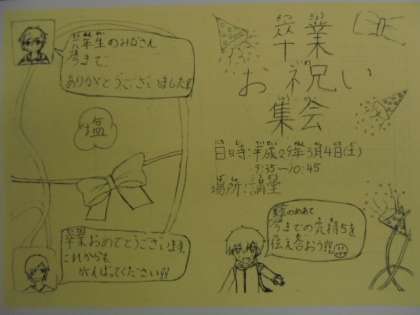 卒業
お祝い
集会
日時:平成29年3月4日(土)
9:35~10:45
場所:講堂
今までの気持ちを
伝え合おう!!
六年生のみなさん
今まで
ありがとうございました!!
塩
卒業おめでとうございます。
これからも
がんばってください!!